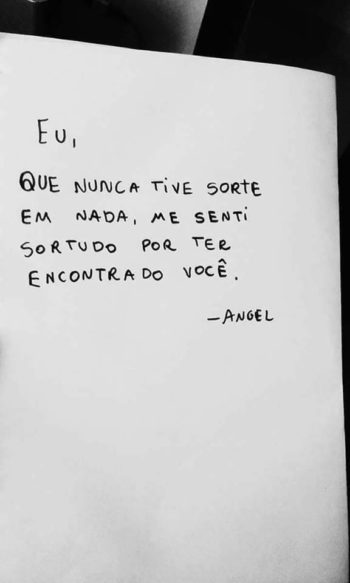 EU,
QUE NUNCA TIVE SORTE
EM NADA, ME SENTI
SORTUDO POR TER
ENCONTRADO VOCÊ.
—ANGEL